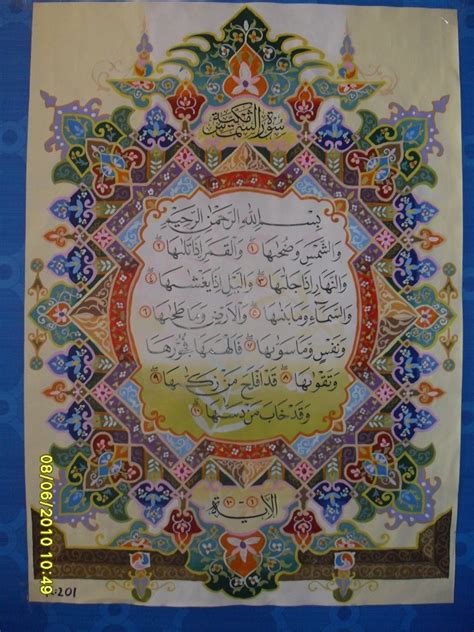 سورة الشمس مكية
بسم الله الرحمن الرحيم
والشمس وضحىها ١ والقمر اذا تلىها ٢
والنهار اذا جلىها ٣ واليل اذا يغشىها ٤
والسماء وما بنىها ٥ والارض وما طحىها ٦
ونفس وما سوىها ٧ فالهمها فجورها
وتقوىها ٨ قد افلح من زكىها ٩
وقد خاب من دسىها ١٠
١ - ١٠
الاية
201
08/06/2010 10:49